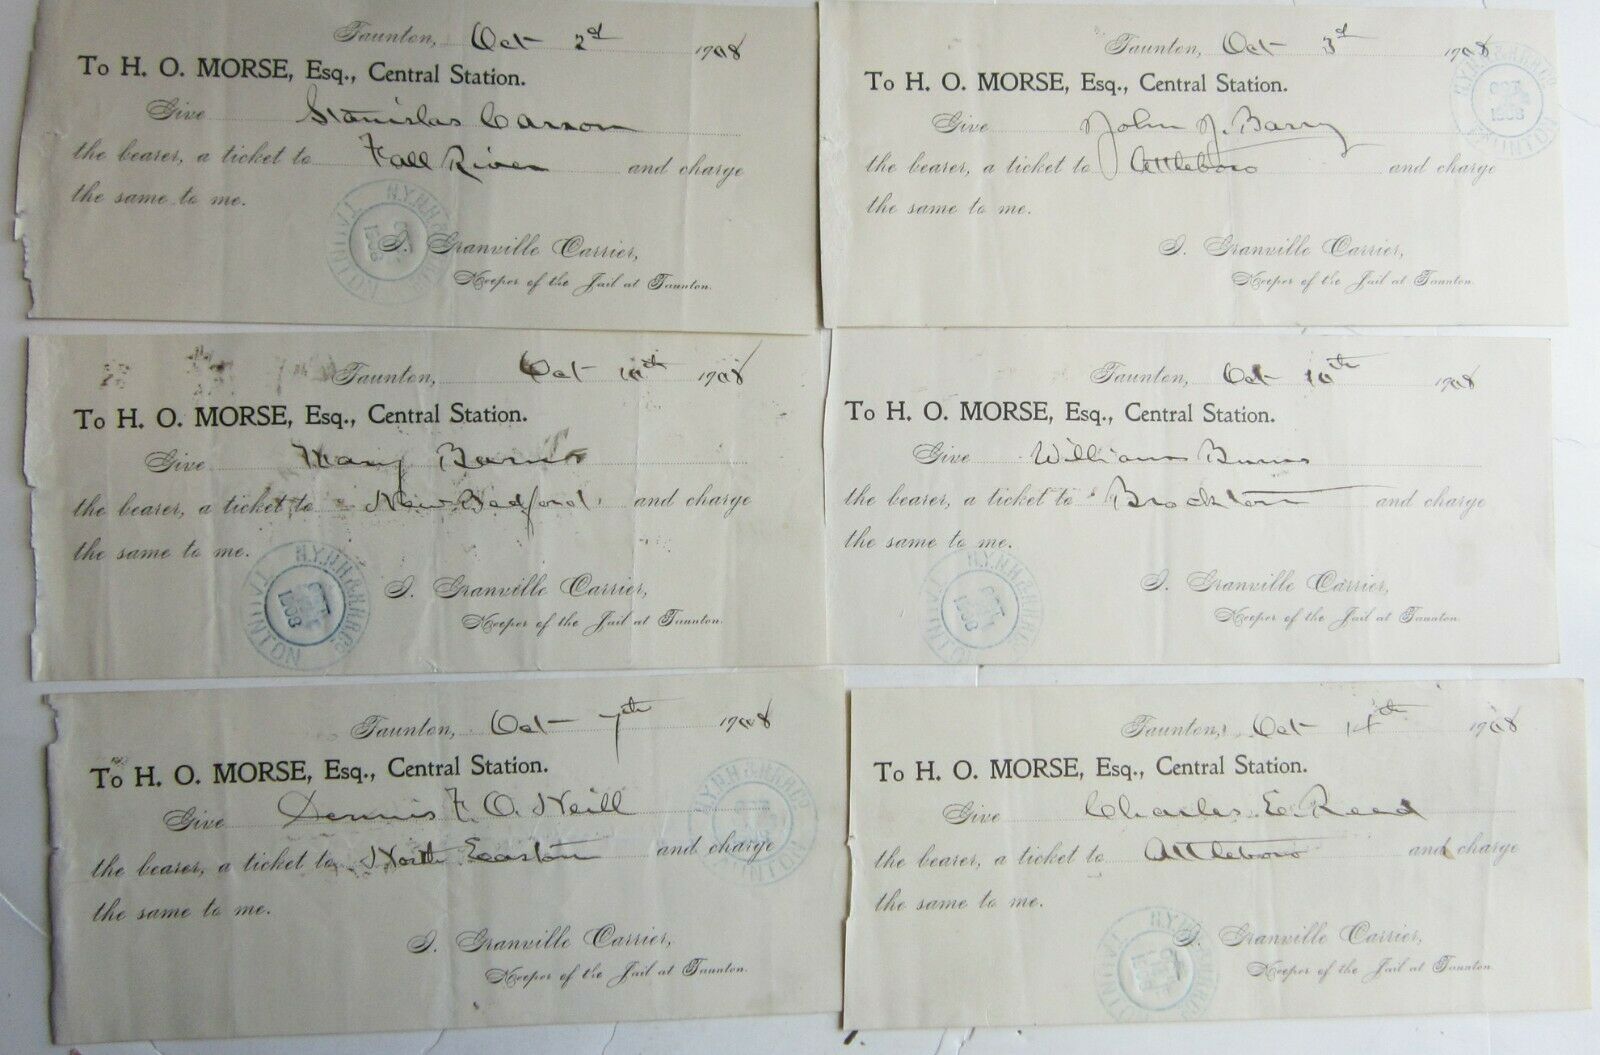 Taunton, Oct 2d 1908
To H. O. MORSE, Esq., Central Station.
Give Stanislas Carron
the bearer, a ticket to Fall River and charge
the same to me.
I. Granville Carrier,
Keeper of the Jail at Taunton.
N.Y.N.H.&H.R.R.Co. OCT 1908 TAUNTON
Taunton, Oct 3d 1908
To H. O. MORSE, Esq., Central Station.
Give John J. Barry
the bearer, a ticket to Attleboro and charge
the same to me.
I. Granville Carrier,
Keeper of the Jail at Taunton.
N.Y.N.H.&H.R.R.Co. OCT 1908 TAUNTON
Taunton, Oct 10th 1908
To H. O. MORSE, Esq., Central Station.
Give Mary
the bearer, a ticket to New Bedford and charge
the same to me.
I. Granville Carrier,
Keeper of the Jail at Taunton.
N.Y.N.H.&H.R.R.Co. OCT 1908 TAUNTON
Taunton, Oct 10th 1908
To H. O. MORSE, Esq., Central Station.
Give William Burns
the bearer, a ticket to Brockton and charge
the same to me.
I. Granville Carrier,
Keeper of the Jail at Taunton.
N.Y.N.H.&H.R.R.Co. OCT 1908 TAUNTON
Taunton, Oct 7th 1908
To H. O. MORSE, Esq., Central Station.
Give Dennis F. O. Neill
the bearer, a ticket to North Easton and charge
the same to me.
I. Granville Carrier,
Keeper of the Jail at Taunton.
N.Y.N.H.&H.R.R.Co. TAUNTON
Taunton, Oct 14th 1908
To H. O. MORSE, Esq., Central Station.
Give Charles E. Reed
the bearer, a ticket to Attleboro and charge
the same to me.
I. Granville Carrier,
Keeper of the Jail at Taunton.
N.Y.N.H.&H.R.R.Co. OCT TAUNTON